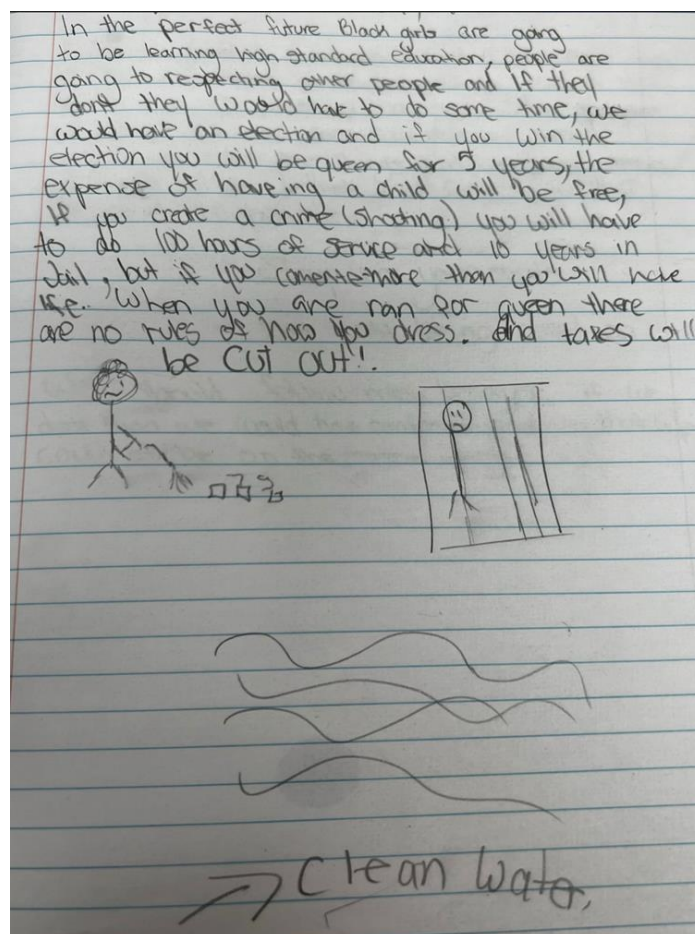 In the perfect future Black girls are going
to be learning high standard education, people are
going to respecting other people and if they
dont they would have to do some time, we
would have an election and if you win the
election you will be queen for 5 years, the
expense of haveing a child will be free,
If you create a crime (shooting) you will have
to do 100 hours of service and 10 years in
Jail, but if you more than you will have
life. When you are ran for queen there
are no rules of how you dress. And taxes will
be CUT OUT!!
Clean Water.